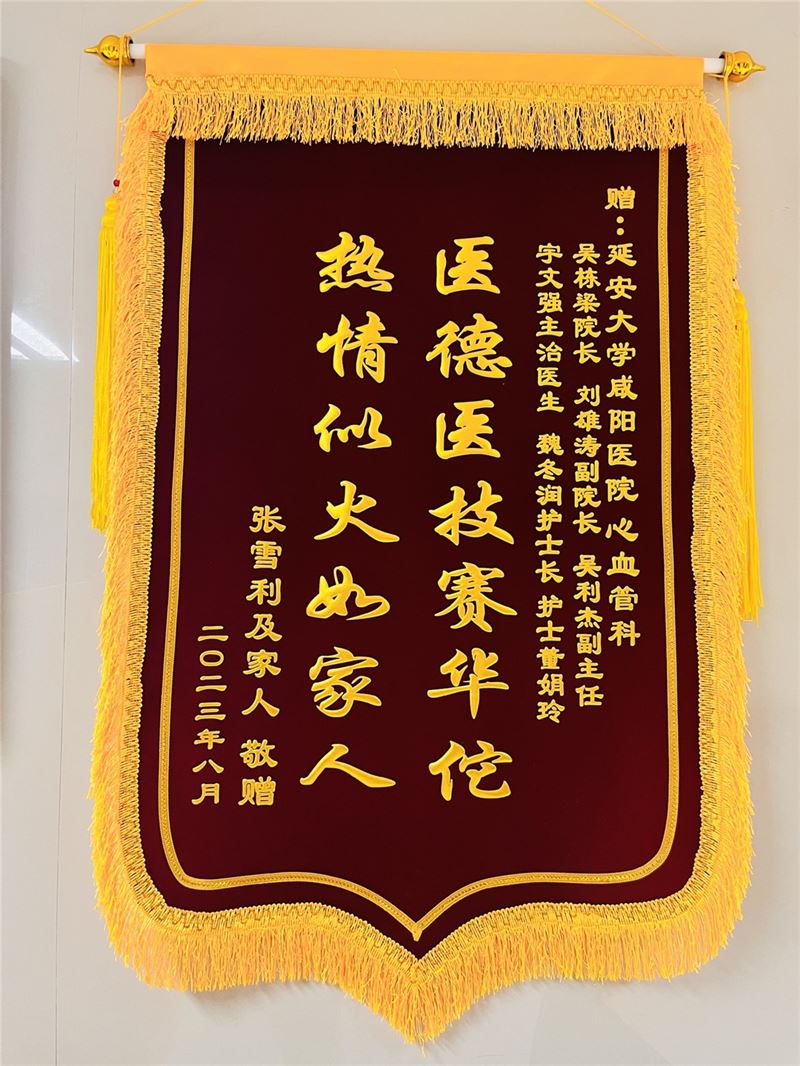 赠：延安大学咸阳医院心血管科
吴栋梁院长 刘雄涛副院长 吴利杰副主任
宇文强主治医生 魏冬润护士长 护士董娟玲
医德医技赛华佗
热情似火如家人
张雪利及家人 敬赠
二〇二三年八月